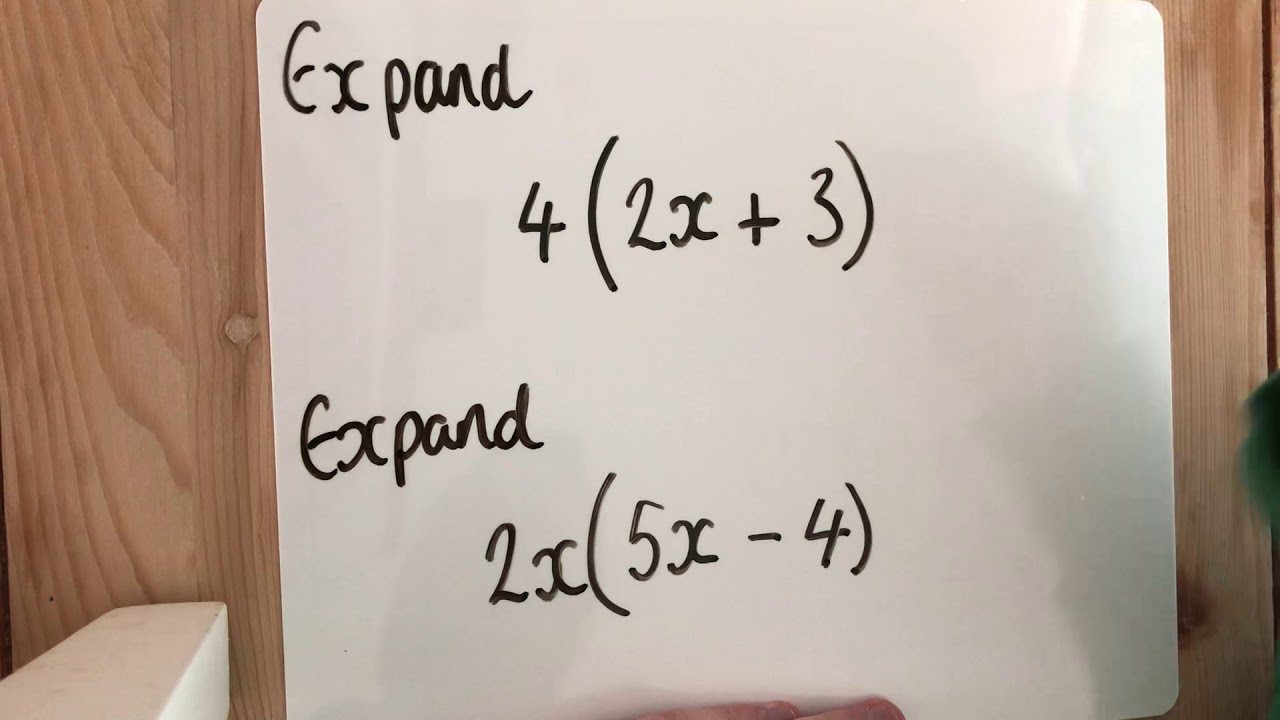 Expand
4(2x + 3)
Expand
2x(5x - 4)